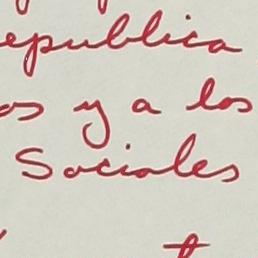 epublica
os y a los
Sociales